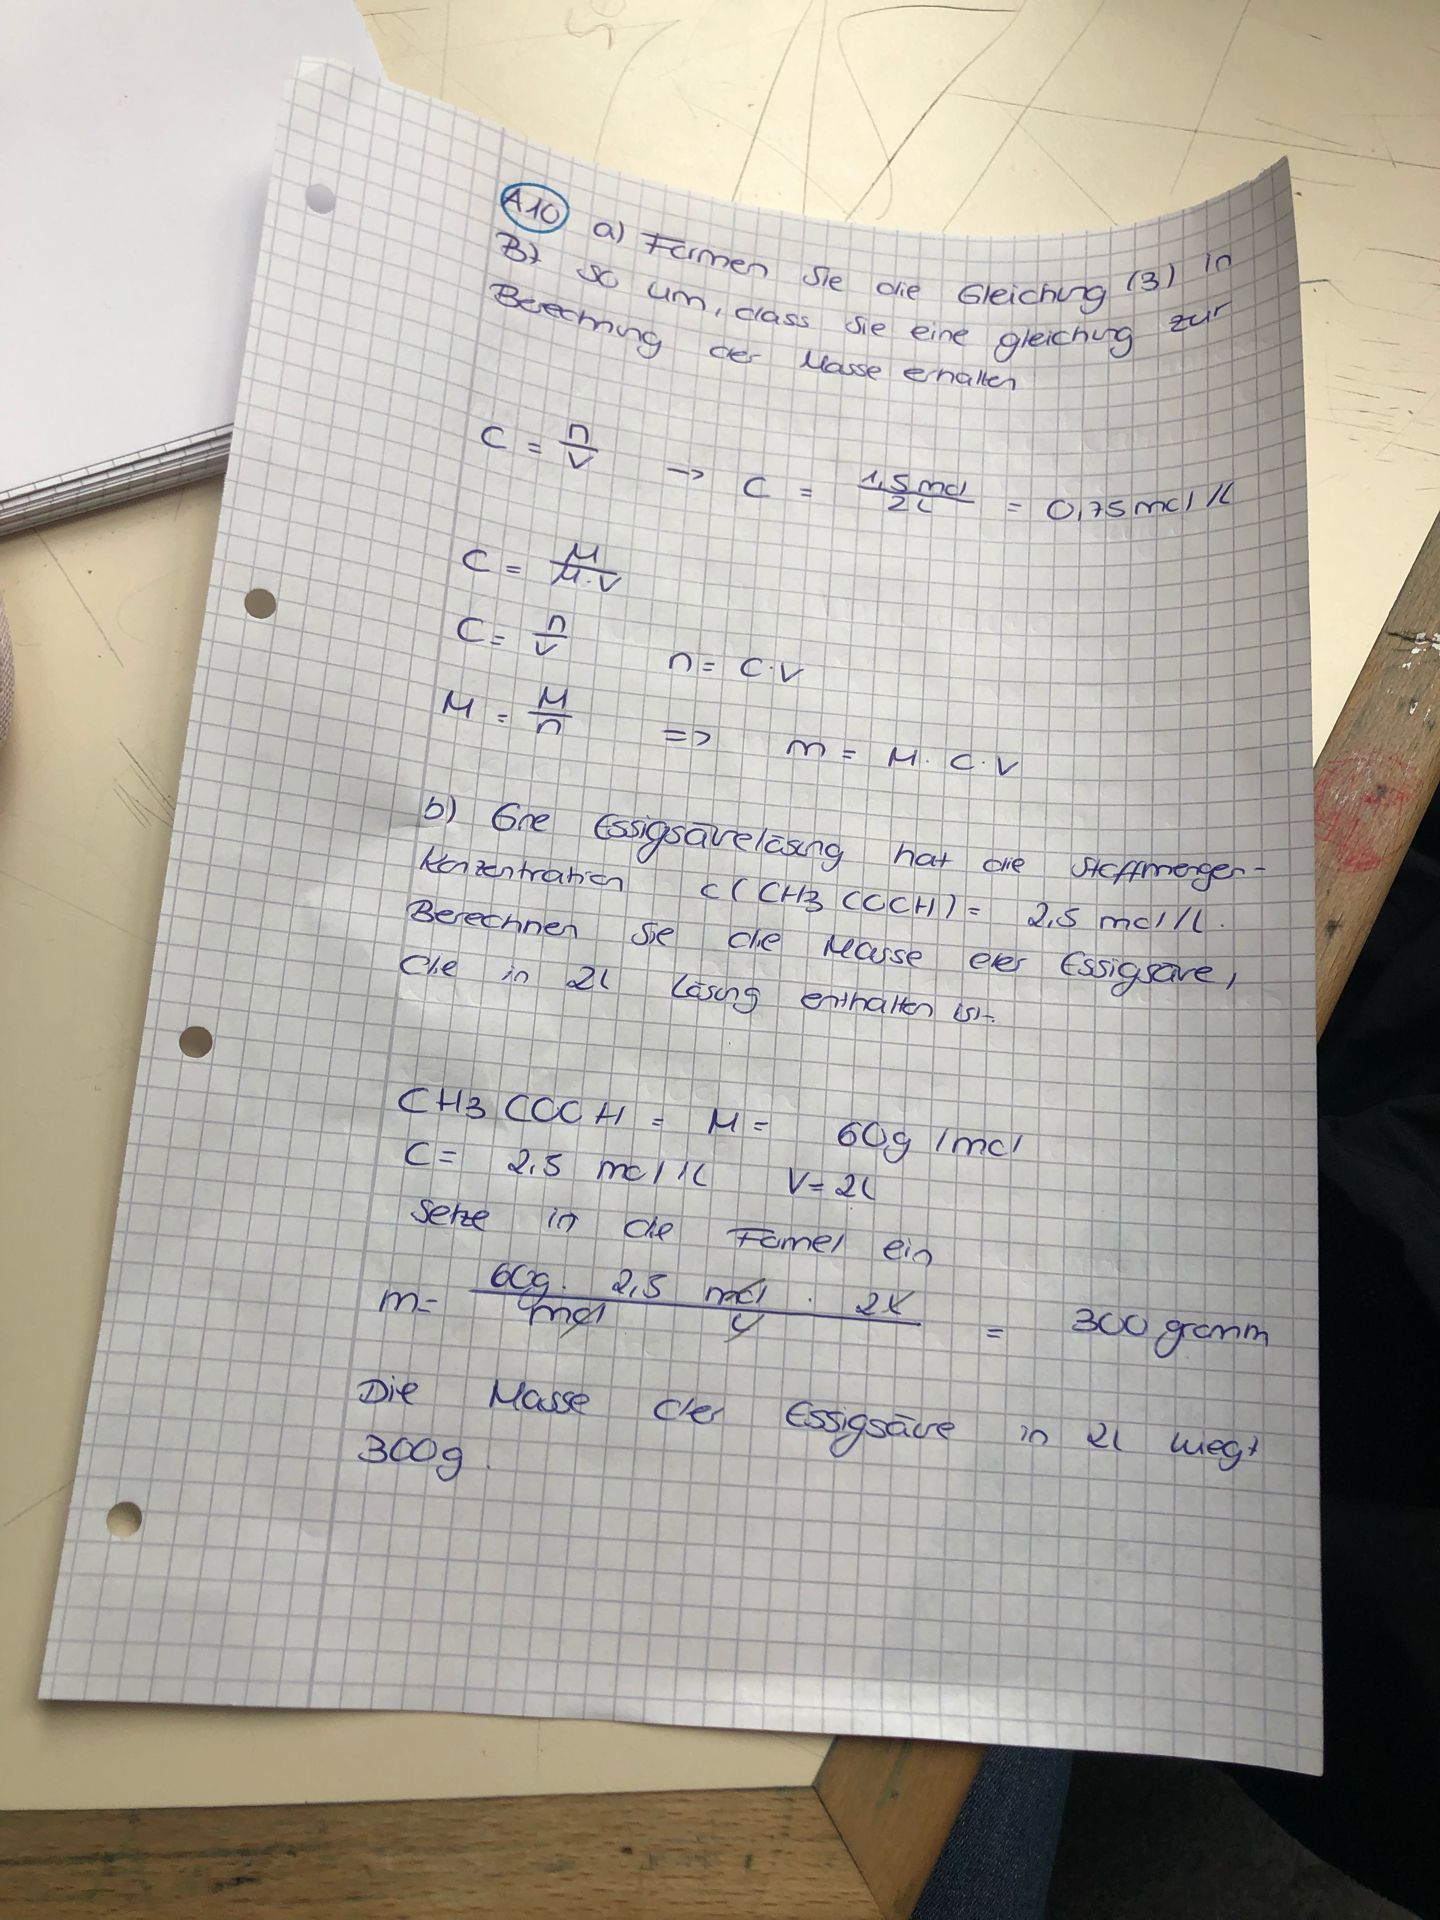 A10 a) Formen Sie die Gleichung (3) in
B7 so um, dass Sie eine gleichung zur
Berechnung der Masse erhalten
C = n/V → C = 1,5 mol/2L = 0,75 mol/L
C = M/M·V
C = n/V n = C·V
M = M/n => m = M·C·V
b) Eine Essigsäurelösung hat die Stoffmengen-
konzentration c(CH3COOH) = 2,5 mol/L.
Berechnen Sie die Masse der Essigsäure,
die in 2L Lösung enthalten ist.
CH3COOH = M = 60g/mol
C = 2,5 mol/L V = 2L
Setze in die Formel ein
m = 60g · 2,5 mol · 2L / mol L = 300 gramm
Die Masse der Essigsäure in 2L wiegt
300g.